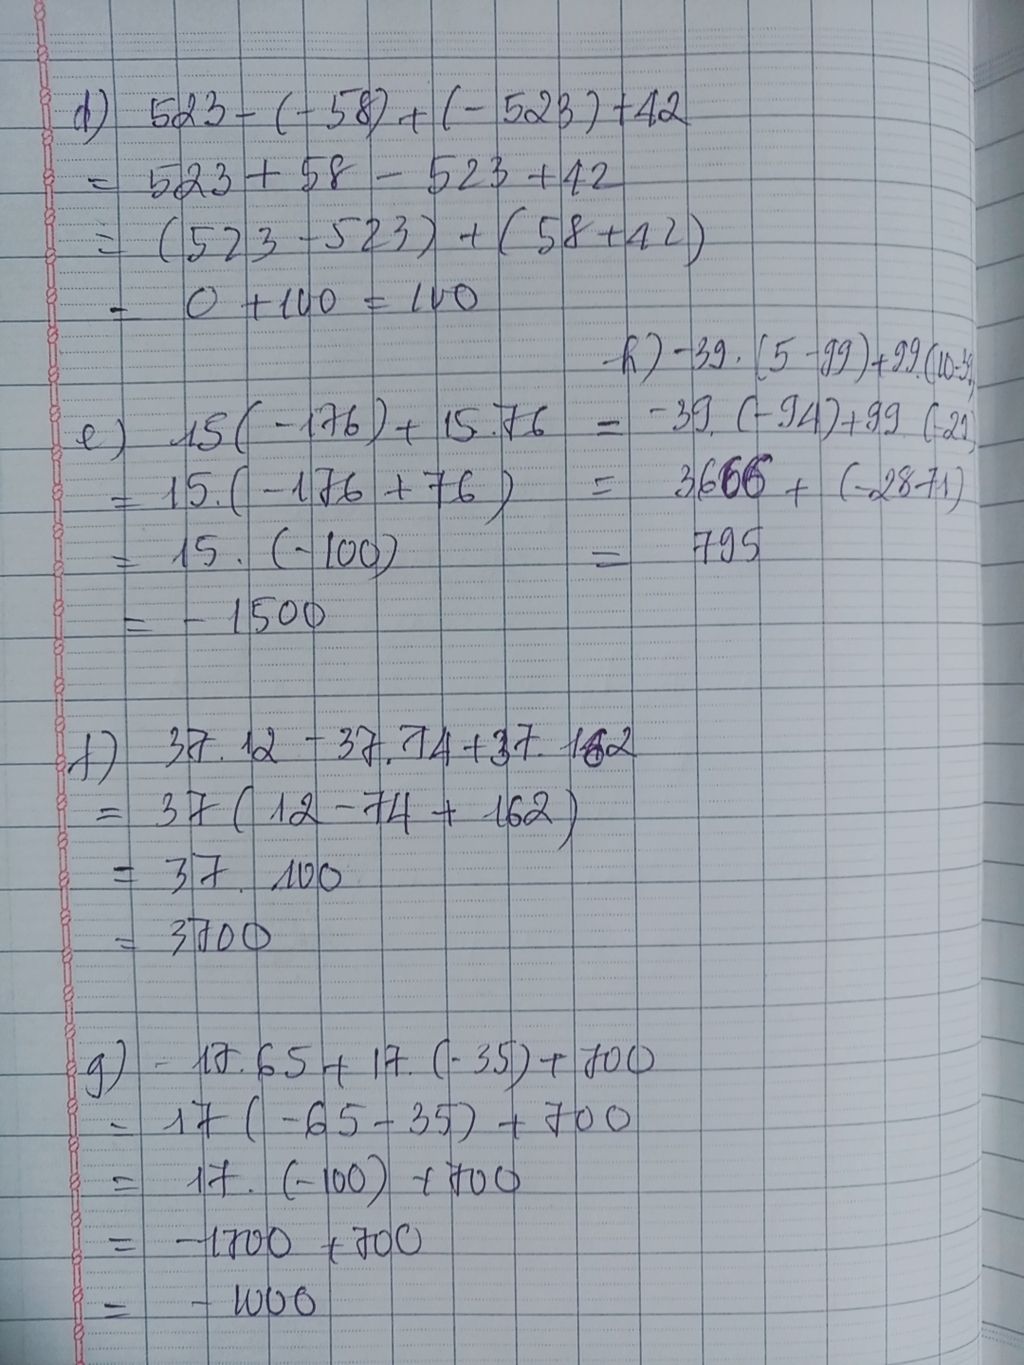 d) 523 - (-58) + (-523) + 42
= 523 + 58 - 523 + 42
= (523 - 523) + (58 + 42)
= 0 + 100 = 100
e) 15(-176) + 15.76
= 15.(-176 + 76)
= 15. (-100)
= -1500
h) -39. (5 - 99) + 99.(10-39)
= -39. (-94) + 99 (-29)
= 3666 + (-2871)
= 795
f) 37.12 - 37.74 + 37.162
= 37(12 - 74 + 162)
= 37. 100
= 3700
g) -17.65 + 17.(-35) + 700
= 17(-65 - 35) + 700
= 17. (-100) + 700
= -1700 + 700
= -1000